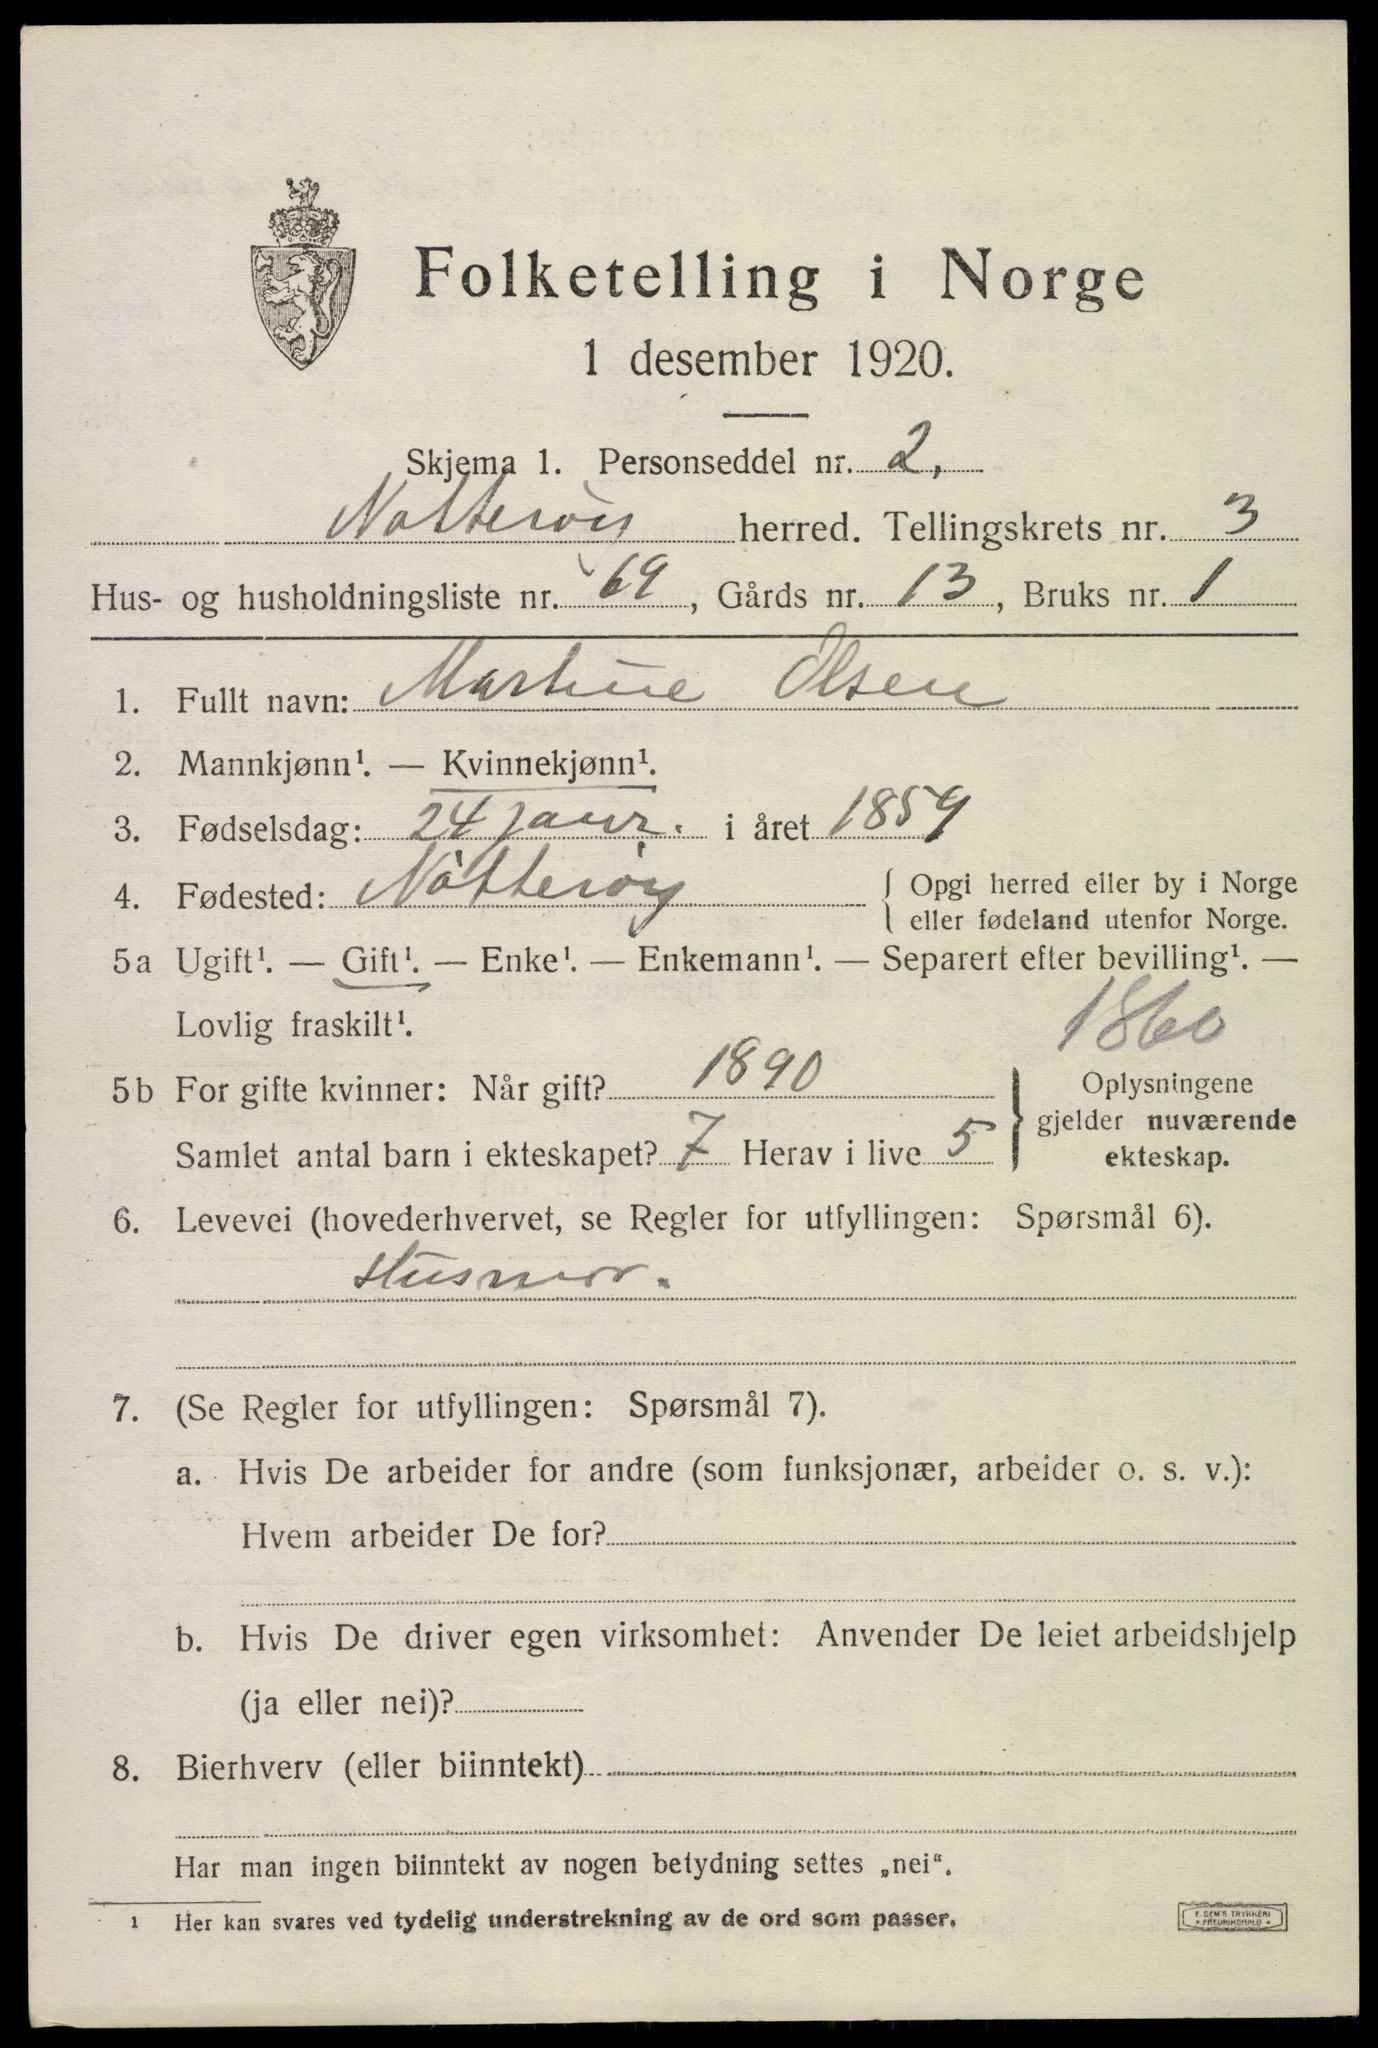 Folketelling i Norge
1 desember 1920.
Skjema 1. Personseddel nr. 2,
Nøtterøy herred. Tellingskrets nr. 3
Hus- og husholdningsliste nr. 69, Gårds nr. 13, Bruks nr. 1
1. Fullt navn: Martine Olsen
2. Mannkjønn¹. — Kvinnekjønn¹.
3. Fødselsdag: 24 janr. i året 1859
4. Fødested: Nøtterøy { Opgi herred eller by i Norge
eller fødeland utenfor Norge.
5a Ugift¹. — Gift¹. — Enke¹. — Enkemann¹. — Separert efter bevilling¹. —
Lovlig fraskilt¹. 1860
5b For gifte kvinner: Når gift? 1890 } Oplysningene
gjelder nuværende
Samlet antal barn i ekteskapet? 7 Herav i live 5 ekteskap.
6. Levevei (hovederhvervet, se Regler for utfyllingen: Spørsmål 6).
Husmor.
7. (Se Regler for utfyllingen: Spørsmål 7).
a. Hvis De arbeider for andre (som funksjonær, arbeider o. s. v.):
Hvem arbeider De for?
b. Hvis De driver egen virksomhet: Anvender De leiet arbeidshjelp
(ja eller nei)?
8. Bierhverv (eller biinntekt)
Har man ingen biinntekt av nogen betydning settes „nei“.
¹ Her kan svares ved tydelig understrekning av de ord som passer.
E. SEM'S TRYKKERI
• FREDRIKSHALD •